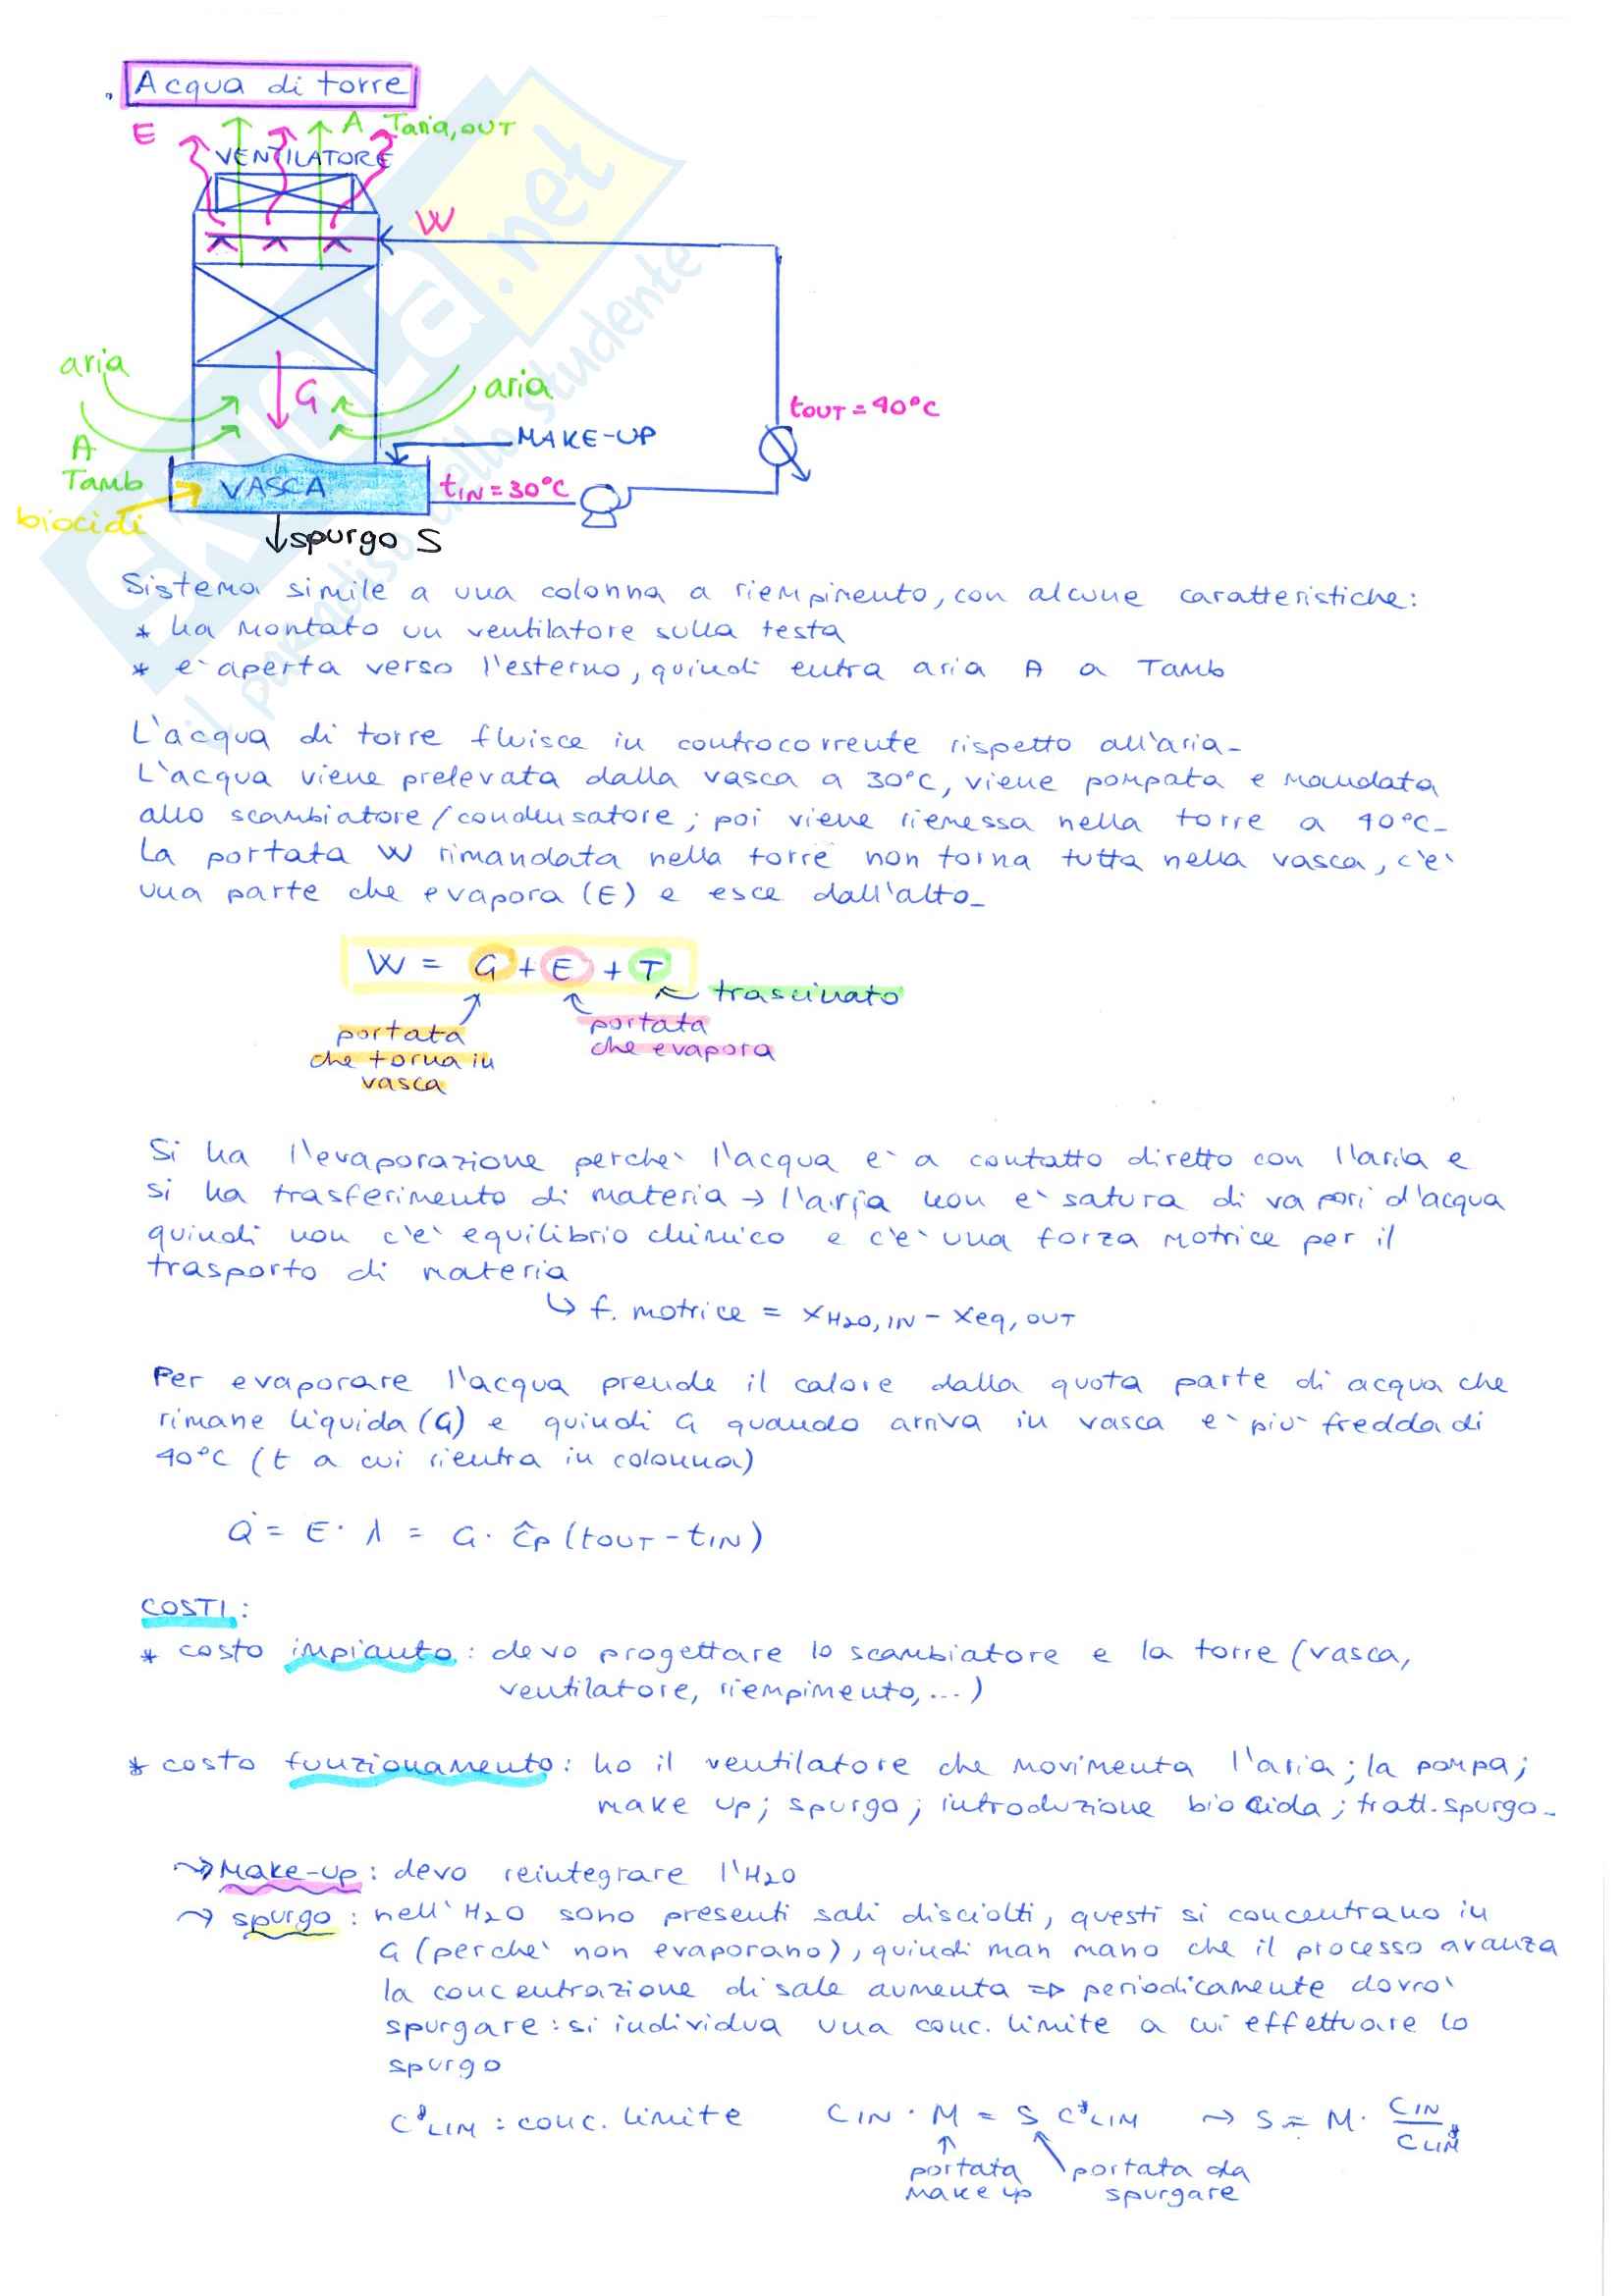 Acqua di torre
E
A Taria,OUT
VENTILATORE
W
aria
G
aria
tOUT = 40°C
A
MAKE-UP
Tamb
VASCA
tIN = 30°C
biocidi
spurgo S
Skuola.net
il paradiso dello studente
Sistema simile a una colonna a riempimento, con alcune caratteristiche:
* ha montato un ventilatore sulla testa
* è aperta verso l'esterno, quindi entra aria A a Tamb
L'acqua di torre fluisce in controcorrente rispetto all'aria.
L'acqua viene prelevata dalla vasca a 30°C, viene pompata e mandata
allo scambiatore/condensatore; poi viene riemessa nella torre a 40°C.
La portata W rimandata nella torre non torna tutta nella vasca, c'è
una parte che evapora (E) e esce dall'alto.
W = G + E + T
trascinato
portata che torna in vasca
portata che evapora
Si ha l'evaporazione perchè l'acqua è a contatto diretto con l'aria e
si ha trasferimento di materia → l'aria non è satura di vapori d'acqua
quindi non c'è equilibrio chimico e c'è una forza motrice per il
trasporto di materia
↳ f. motrice = xH2O,IN - xeq,OUT
Per evaporare l'acqua prende il calore dalla quota parte di acqua che
rimane liquida (G) e quindi G quando arriva in vasca è più fredda di
40°C (t a cui rientra in colonna)
Q̇ = E · λ = G · ĉP (tOUT - tIN)
COSTI:
* costo impianto: devo progettare lo scambiatore e la torre (vasca,
ventilatore, riempimento, ...)
* costo funzionamento: ho il ventilatore che movimenta l'aria; la pompa;
make up; spurgo; introduzione biocida; tratt. spurgo.
⇝ Make-up: devo reintegrare l'H2O
⇝ spurgo: nell'H2O sono presenti sali disciolti, questi si concentrano in
G (perchè non evaporano), quindi man mano che il processo avanza
la concentrazione di sale aumenta ⇒ periodicamente dovrò
spurgare: si individua una conc. limite a cui effettuare lo
spurgo
C*LIM : conc. limite CIN · M = S C*LIM ⇝ S = M · CIN / CLIM*
portata make up
portata da spurgare